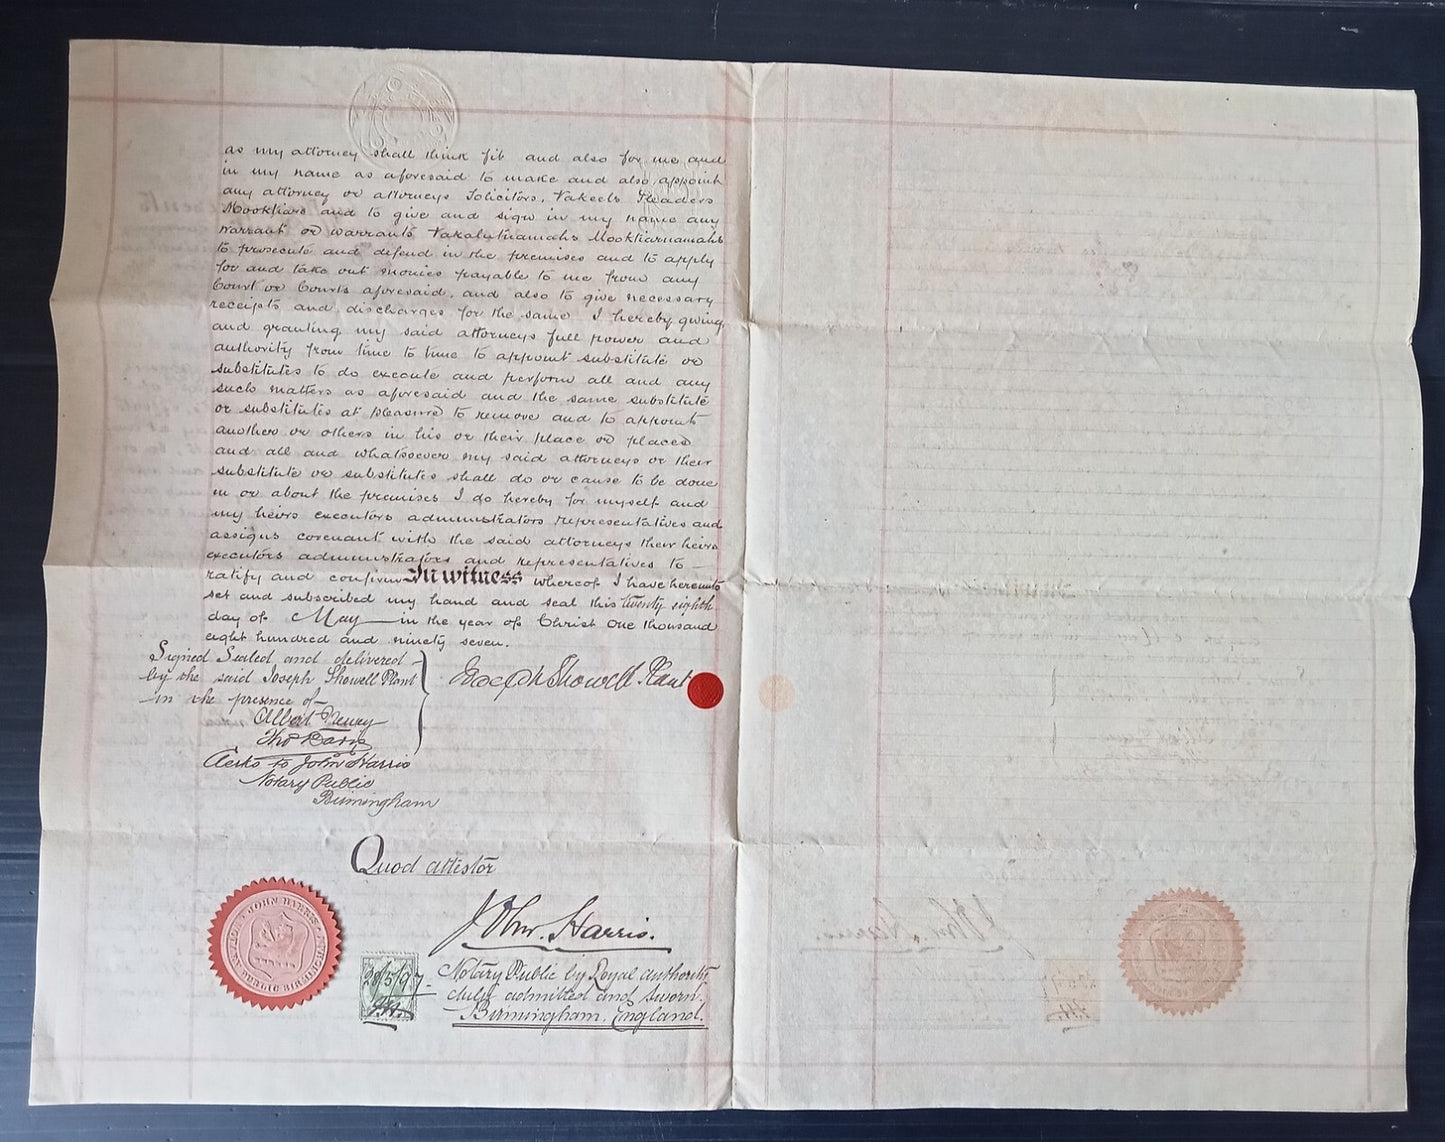 as my attorney shall think fit and also for me and
in my name as aforesaid to make and also appoint
any attorney or attorneys Solicitors, Vakeels Pleaders
Mooktiars and to give and sign in my name any
warrant or warrants Vakalutnamahs Mooktiarnamahs
to prosecute and defend in the premises and to apply
for and take out monies payable to me from any
Court or Courts aforesaid, and also to give necessary
receipts and discharges for the same I hereby giving
and granting my said attorneys full power and
authority from time to time to appoint substitute or
substitutes to do execute and perform all and any
such matters as aforesaid and the same substitute
or substitutes at pleasure to remove and to appoint
another or others in his or their place or places
and all and whatsoever my said attorneys or their
substitute or substitutes shall do or cause to be done
in or about the premises I do hereby for myself and
my heirs executors administrators representatives and
assigns covenant with the said attorneys their heirs
executors administrators and representatives to
ratify and confirm In witness whereof I have hereunto
set and subscribed my hand and seal this twenty eighth
day of May in the year of Christ one thousand
eight hundred and ninety seven.
Signed Sealed and delivered
by the said Joseph Showell Plant
in the presence of
Joseph Showell Plant
Albert
Thos
Clerks to John Harris
Notary Public
Birmingham
Quod attestor
John Harris.
28/5/97.
Notary Public by Royal authority
duly admitted and sworn.
Birmingham, England.
JOHN HARRIS
NOTARY PUBLIC BIRMINGHAM